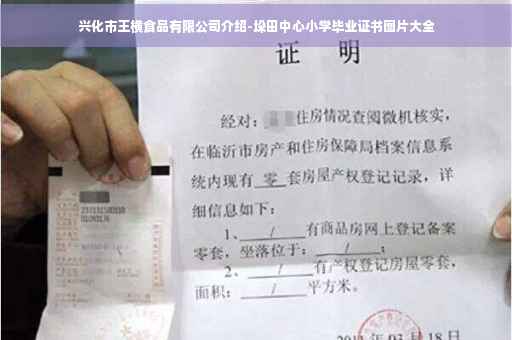 兴化市王横食品有限公司介绍-垛田中心小学毕业证书图片大全
证 明
经对：住房情况查阅微机核实，
在临沂市房产和住房保障局档案信息系
统内现有 零 套房屋产权登记记录，详
细信息如下：
1、 / 有商品房网上登记备案
零套，坐落位于： / ；
2、 / 有产权登记房屋零套，
面积： / 平方米。
03月18日